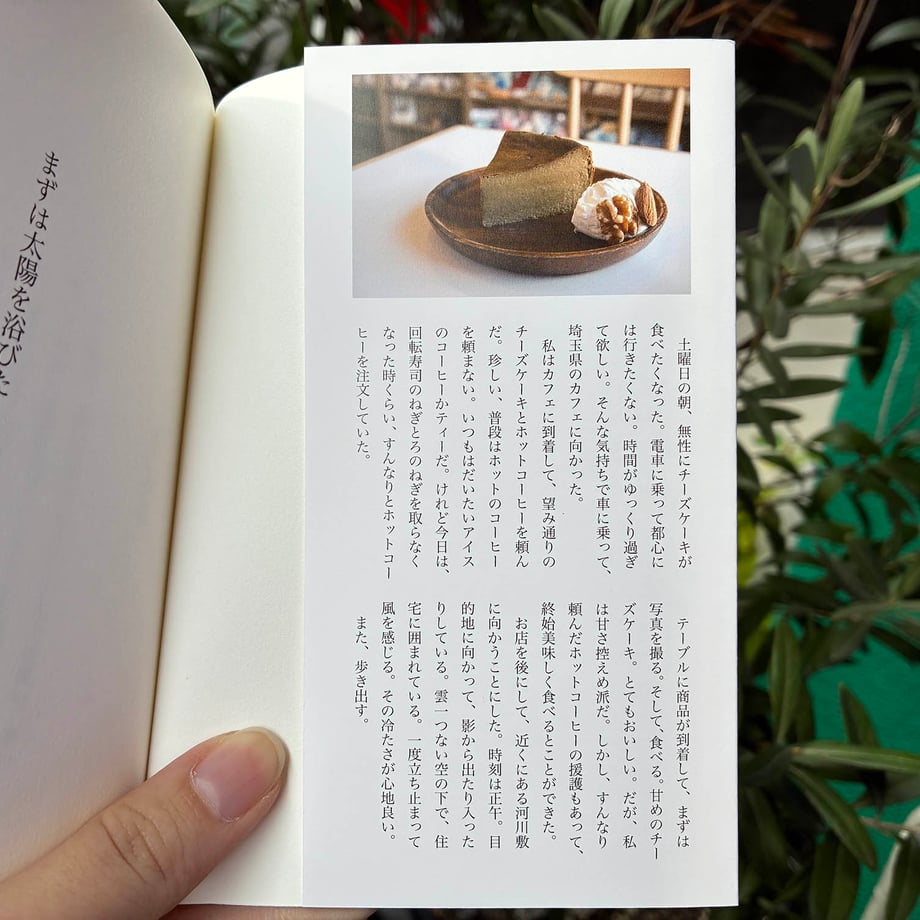 土曜日の朝、無性にチーズケーキが
食べたくなった。電車に乗って都心に
は行きたくない。時間がゆっくり過ぎ
て欲しい。そんな気持ちで車に乗って、
埼玉県のカフェに向かった。
私はカフェに到着して、望み通りの
チーズケーキとホットコーヒーを頼ん
だ。珍しい、普段はホットのコーヒー
を頼まない。いつもはだいたいアイス
のコーヒーかティーだ。けれど今日は、
回転寿司のねぎとろのねぎを取らなく
なった時くらい、すんなりとホットコー
ヒーを注文していた。
テーブルに商品が到着して、まずは
写真を撮る。そして、食べる。甘めのチー
ズケーキ。とてもおいしい。だが、私
は甘さ控えめ派だ。しかし、すんなり
頼んだホットコーヒーの援護もあって、
終始美味しく食べるとことができた。
お店を後にして、近くにある河川敷
に向かうことにした。時刻は正午。目
的地に向かって、影から出たり入った
りしている。雲一つない空の下で、住
宅に囲まれている。一度立ち止まって
風を感じる。その冷たさが心地良い。
また、歩き出す。
まずは太陽を浴びた